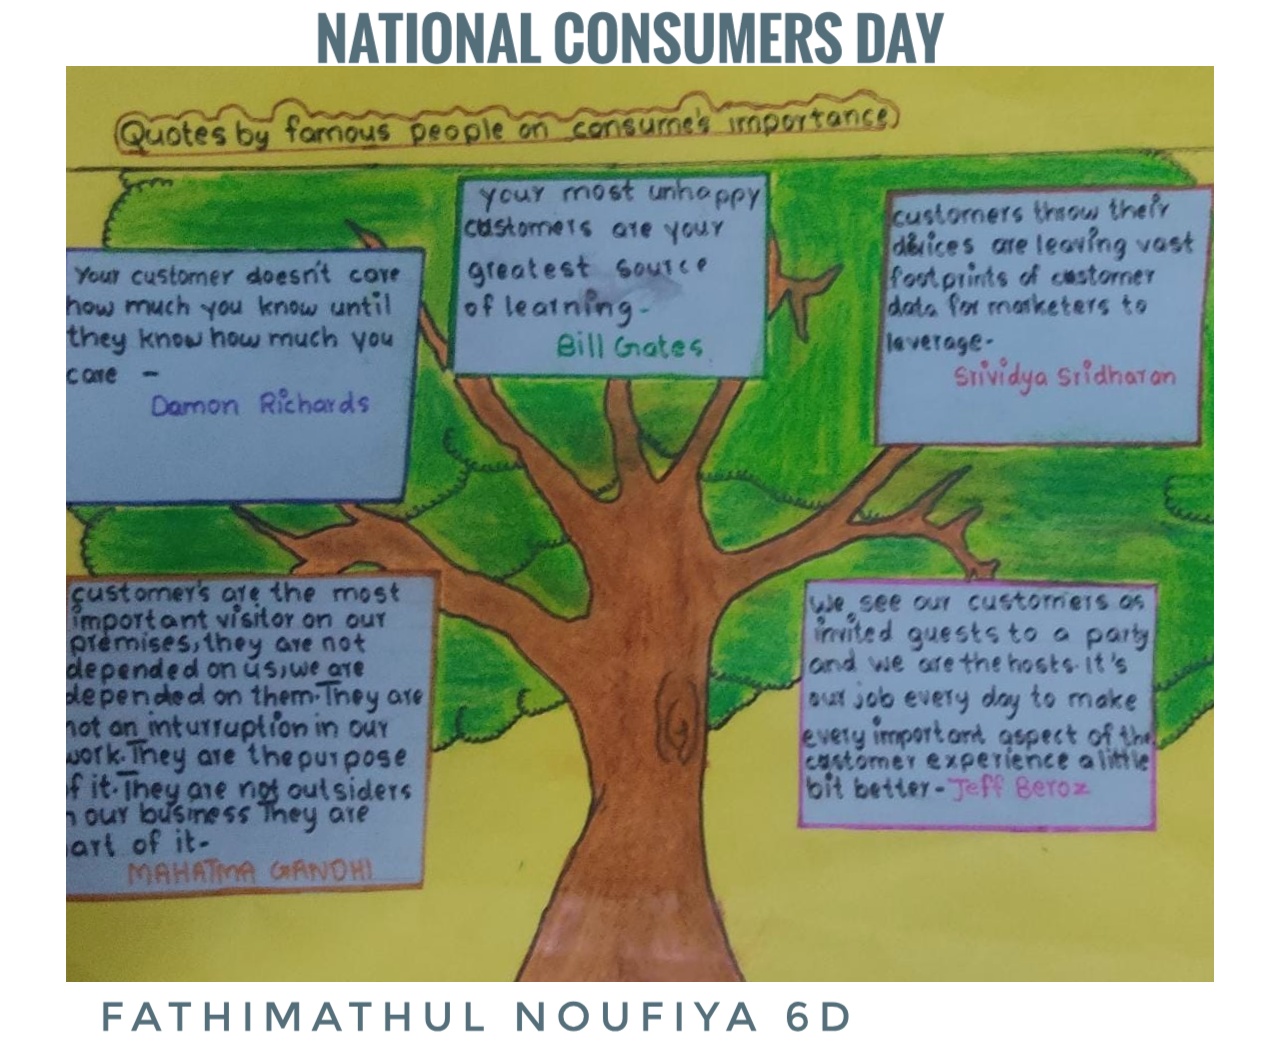 NATIONAL CONSUMERS DAY
Quotes by famous people on consume's importance
Your customer doesn't care
how much you know until
they know how much you
care -
Damon Richards
your most unhappy
customers are your
greatest source
of learning-
Bill Gates
customers throw their
devices are leaving vast
footprints of customer
data for marketers to
leverage-
Srividya Sridharan
customer's are the most
important visitor on our
premises, they are not
depended on us, we are
depended on them. They are
not an inturruption in our
work. They are the purpose
f it. They are not outsiders
our business They are
art of it-
MAHATMA GANDHI
We see our customers as
invited guests to a party
and we are the hosts. it's
our job every day to make
every important aspect of the
customer experience a little
bit better- Jeff Beroz
FATHIMATHUL NOUFIYA 6D